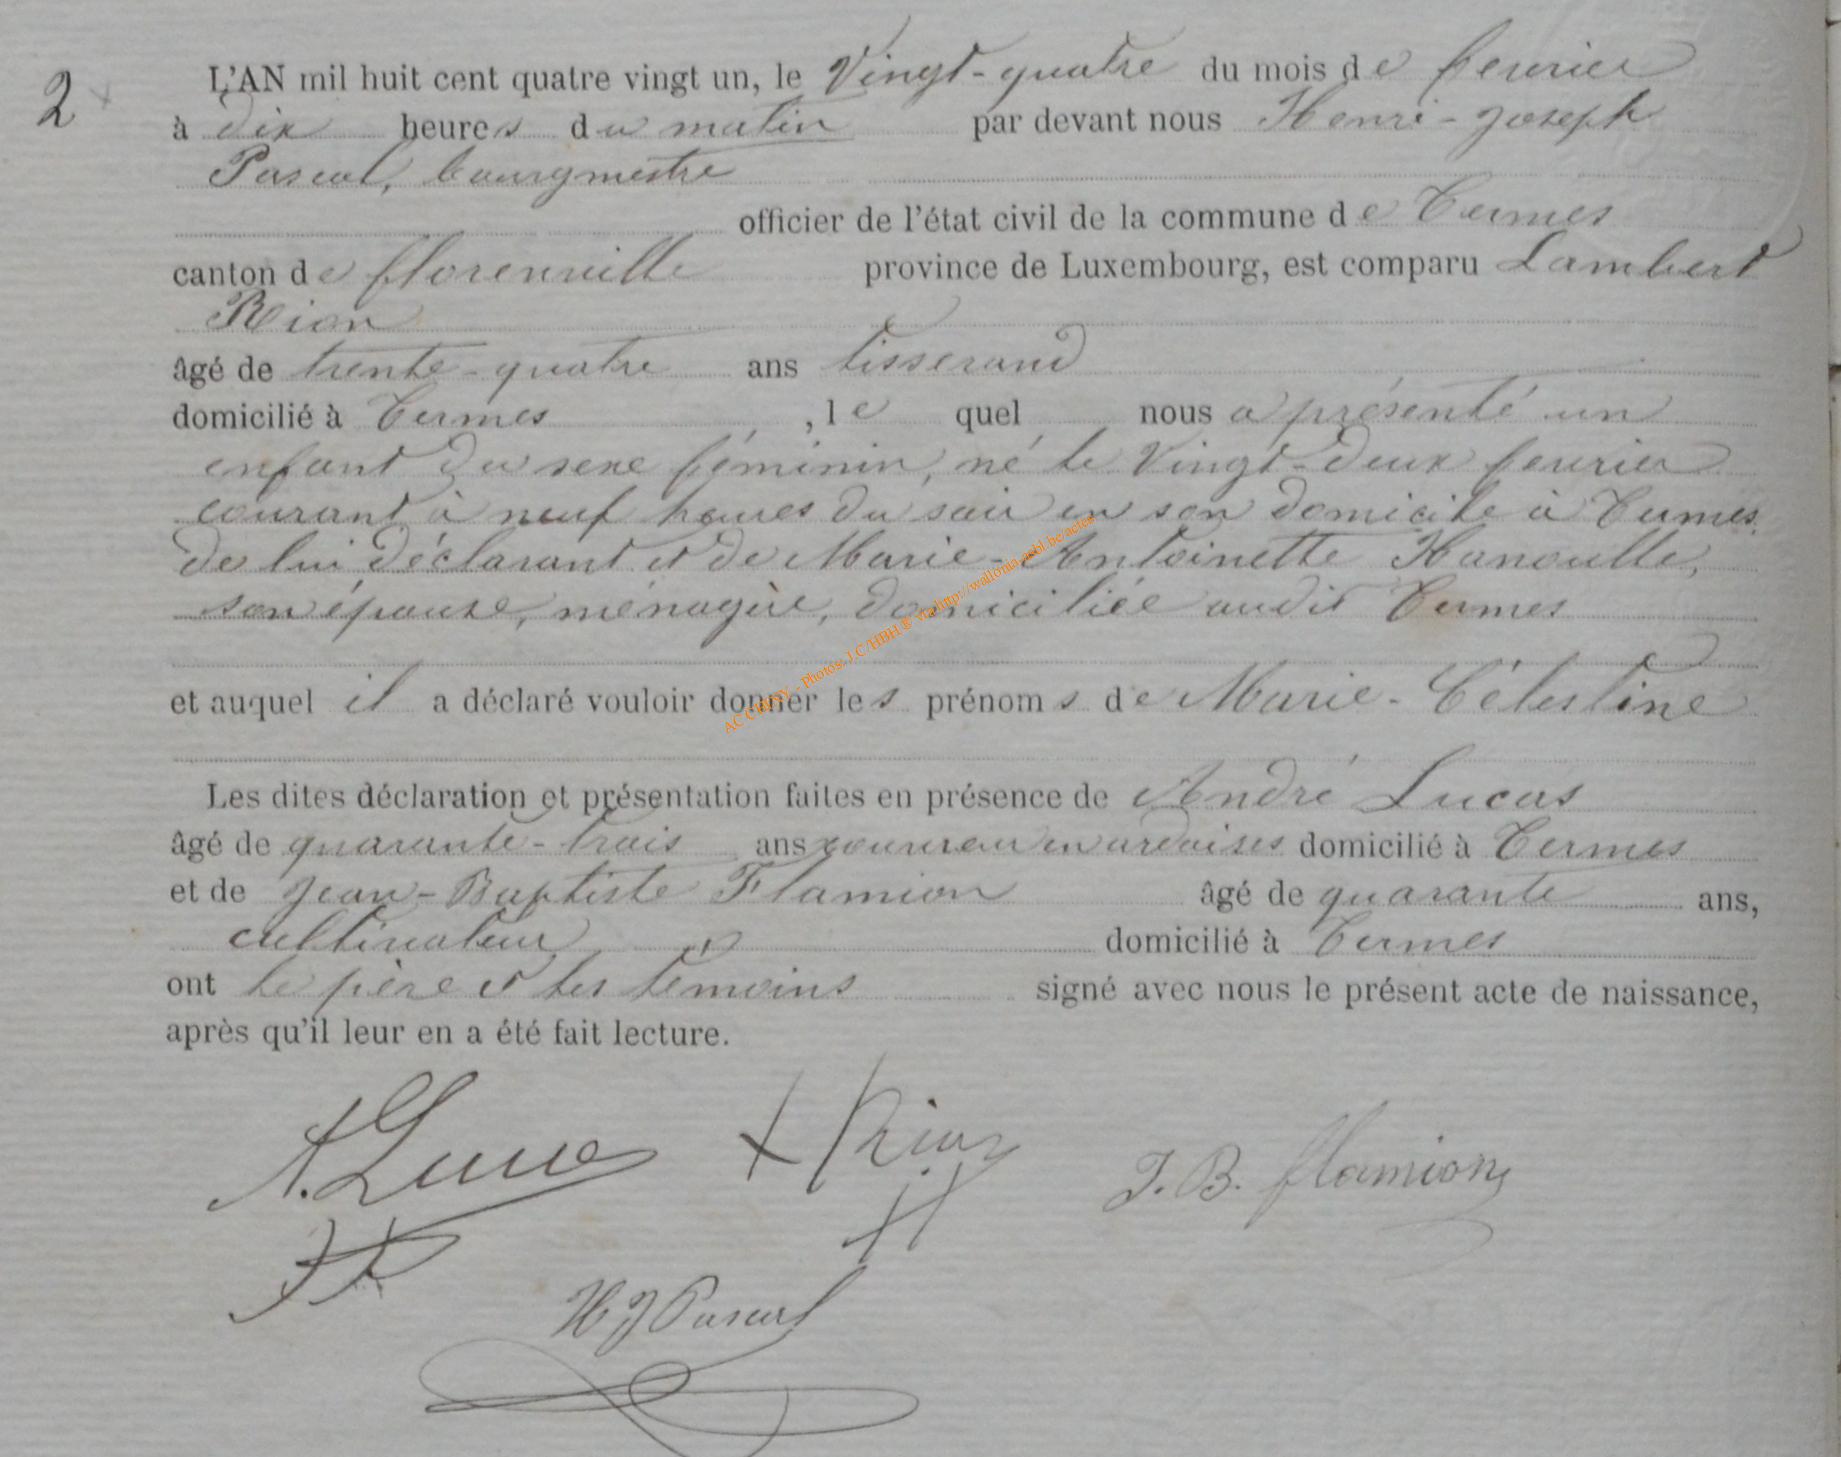 2
L'AN mil huit cent quatre vingt un, le Vingt-quatre du mois de fevrier
à dix heures du matin par devant nous Henri-Joseph
Pascal, bourgmestre
officier de l'état civil de la commune de Termes
canton de florenville province de Luxembourg, est comparu Lambert
Rion
âgé de trente-quatre ans tisserand
domicilié à Termes, lequel nous a présenté un
enfant du sexe féminin, né le Vingt-deux fevrier
courant à neuf heures du soir en son domicile à Termes
de lui déclarant et de Marie-Antoinette Hanoulle,
son épouse, ménagère, domiciliée audit Termes
et auquel il a déclaré vouloir donner les prénoms de Marie-Célestine
Les dites déclaration et présentation faites en présence de André Lucas
âgé de quarante-trois ans couvreur en ardoises domicilié à Termes
et de Jean-Baptiste Flamion âgé de quarante ans,
cultivateur domicilié à Termes
ont le père et les témoins signé avec nous le présent acte de naissance,
après qu'il leur en a été fait lecture.
A. Lucas Rion J. B. flamion
H J Pascal
AC CHINY - Photos: J.C/HBH © via http://wallonia.asbl.be/actes